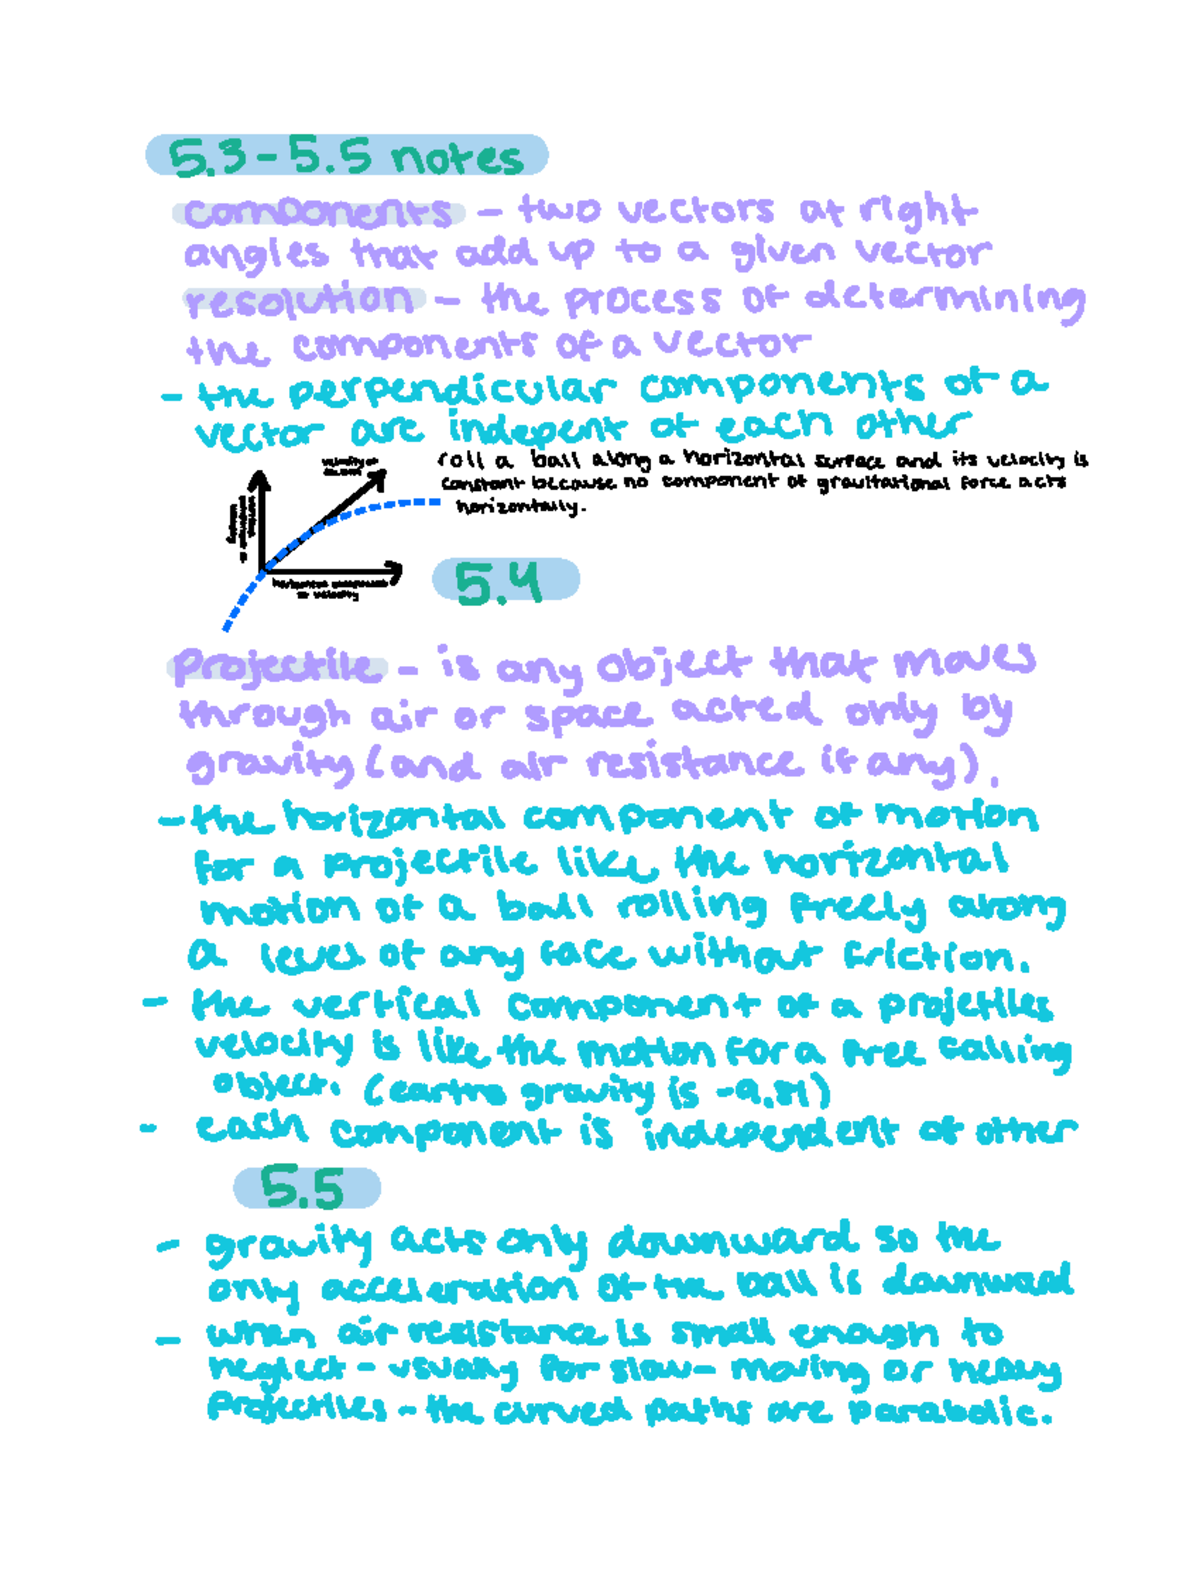 5.3-5.5 notes
components - two vectors at right
angles that add up to a given vector
resolution - the process of determining
the components of a vector
- the perpendicular components of a
vector are indepent of each other
velocity of
roll a ball along a horizontal surface and its velocity is
constant because no component of gravitational force acts
horizontally.
horizontal component
of velocity
5.4
Projectile - is any object that moves
through air or space acted only by
gravity (and air resistance if any).
- the horizontal component of motion
for a projectile like the horizontal
motion of a ball rolling freely along
a level of any face without friction.
- the vertical component of a projetiles
velocity is like the motion for a free falling
object. (earths gravity is -9.81)
- each component is independent of other
5.5
- gravity acts only downward so the
only acceleration of the ball is downward
- when air resistance is small enough to
neglect - usually for slow- moving or heavy
projectiles - the curved paths are parabolic.